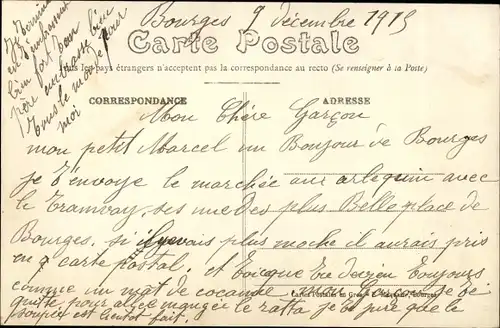 Bourges 9 décembre 1915
Carte Postale
Tous les pays étrangers n'acceptent pas la correspondance au recto (Se renseigner à la Poste)
CORRESPONDANCE
ADRESSE
Mon Chère Garçon
mon petit Marcel un Bonjour de Bourges
je t'envoye le marchée aux arlequin avec
le Tramvay, ses une des plus Belle place de
Bourges. si il yavais plus moche il aurais pris
en 2 carte postal. et toi que tu devien toujours
comme un mat de cocagne mon Garçon je te
quitte pour aller manger le ratta je
soupée est bientôt fait.
Je termine
en t'embrassant
bien fort ton
père embrasse bien
Tous le monde pour
moi